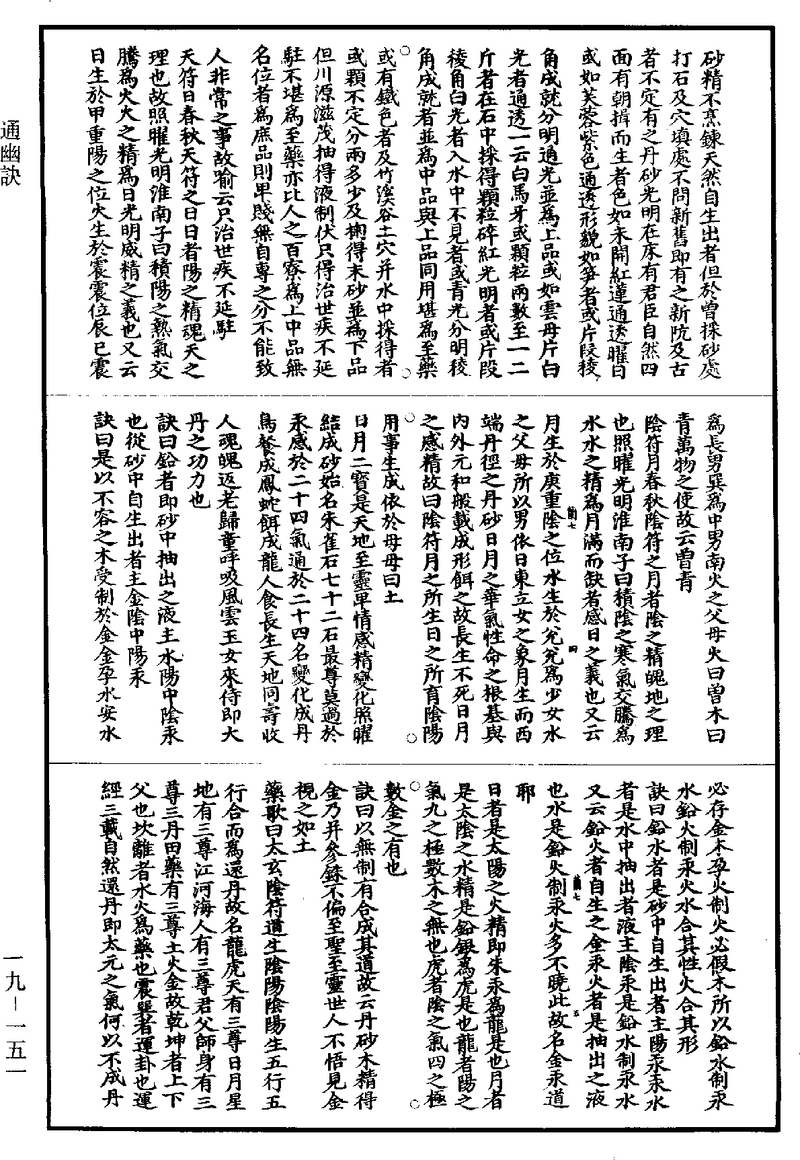 砂精不烹鍊天然自生出者但於曾採砂處
打石及穴填處不問新舊即有之新阬及古
者不定有之丹砂光明在床有君臣自然四
面有朝揖而生者色如未開紅蓮通透曜日
或如芙蓉紫色通透形貌如笋者或片段稜
角成就分明通光並為上品或如雲母片白
光者通透一云白馬牙或顆粒兩數至一二
斤者在石中採得顆粒碎紅光明者或片段
稜角白光者入水中不見者或青光分明稜
角成就者並為中品與上品同用堪為至藥
或有鐵色者及竹溪谷土穴并水中採得者
或顆不定分兩多少及掏得末砂並為下品
但川源滋茂抽得液制伏只得治世疾不延
駐不堪為至藥亦比人之百寮為上中品無
名位者為庶品則卑賤無自專之分不能致
人非常之事故喻云只治世疾不延駐
天符日春秋天符之日日者陽之精魂天之
理也故照曜光明淮南子曰積陽之熱氣交
騰為火火之精為日光明威精之義也又云
日生於甲重陽之位火生於震震位辰巳震
為長男巽為中男南火之父母火曰曾木曰
青萬物之使故云曾青
陰符月春秋陰符之月者陰之精魄地之理
也照曜光明淮南子曰積陰之寒氣交騰為
水水之精為月滿而缺者感日之義也又云
月生於庚重陰之位水生於兊兊為少女水
之父母所以男依日東立女之象月生而西
端丹徑之丹砂日月之華氣性命之根基與
內外元和般載成形餌之故長生不死日月
之感精故曰陰符月之所生日之所育陰陽
用事生成依於母母曰土
日月二寶是天地至靈卑情感精變化照曜
結成砂始名朱雀石七十二石最尊莫過於
汞感於二十四氣通於二十四名變化成丹
鳥餐成鳳蛇餌成龍人食長生天地同壽收
人魂魄返老歸童呼吸風雲玉女來侍即大
丹之功力也
訣曰鉛者即砂中抽出之液主水陽中陰汞
也從砂中自生出者主金陰中陽汞
訣曰是以不容之木受制於金金孕水安水
必存金木孕火制火必假木所以鉛水制汞
水鉛火制汞火水合其性火合其形
訣曰鉛水者是砂中自生出者主陽汞汞水
者是水中抽出者液主陰汞是鉛水制汞水
又云鉛火者自生之金汞火者是抽出之液
也水是鉛火制汞火多不曉此故名金汞道
耶
日者是太陽之火精即朱汞為龍是也月者
是太陰之水精是鉛銀為虎是也龍者陽之
氣九之極數木之無也虎者陰之氣四之極
數金之有也
訣曰以無制有合成其道故云丹砂木精得
金乃并參銖不偏至聖至靈世人不悟見金
視之如土
藥歌曰太玄陰符道生陰陽陰陽生五行五
行合而為還丹故名龍虎天有三尊日月星
地有三尊江河海人有三尊君父師身有三
尊三丹田藥有三尊土火金故乾坤者上下
父也坎離者水火為藥也震巽者運卦也運
經三載自然還丹即太元之氣何以不成丹
通幽訣
一九－一五一